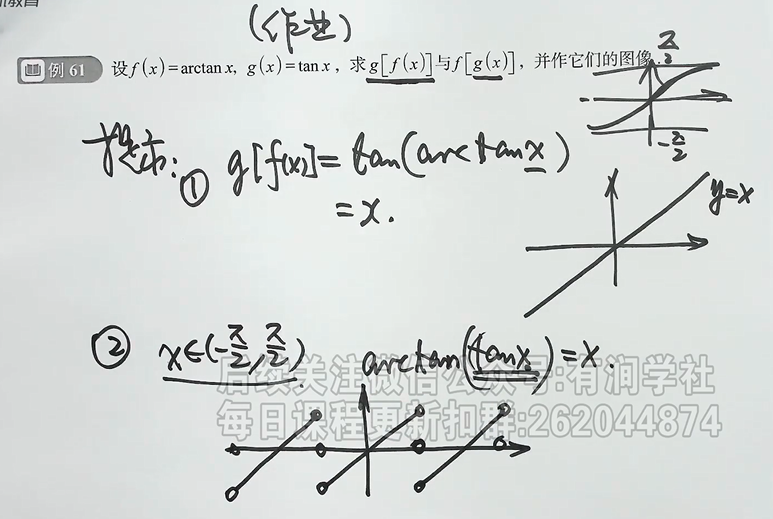 (作业)
例 61 设f(x)=arctan x, g(x)=tan x, 求g[f(x)]与f[g(x)], 并作它们的图像.
π/2
-π/2
提示: ① g[f(x)]=tan(arctan x)
=x.
y=x
② x∈(-π/2, π/2) arctan(tan x)=x.
后续关注微信公众号:有润学社
每日课程更新扣群:262044874